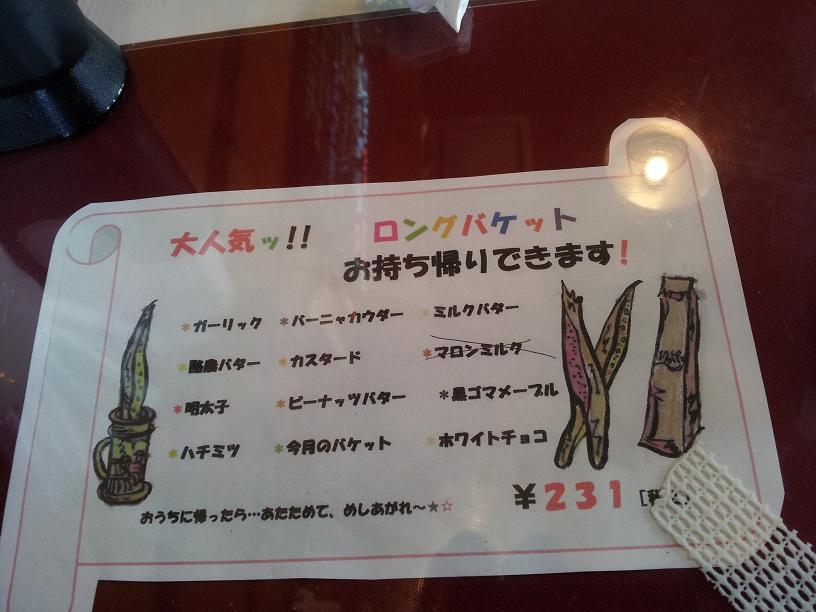 大人気ッ!! ロングバケット
お持ち帰りできます!
*ガーリック *バーニャカウダー *ミルクバター
*酪農バター *カスタード *マロンミルク
*明太子 *ピーナッツバター *黒ゴマメープル
*ハチミツ *今月のバケット *ホワイトチョコ
¥231
おうちに帰ったら…あたためて、めしあがれ~★☆